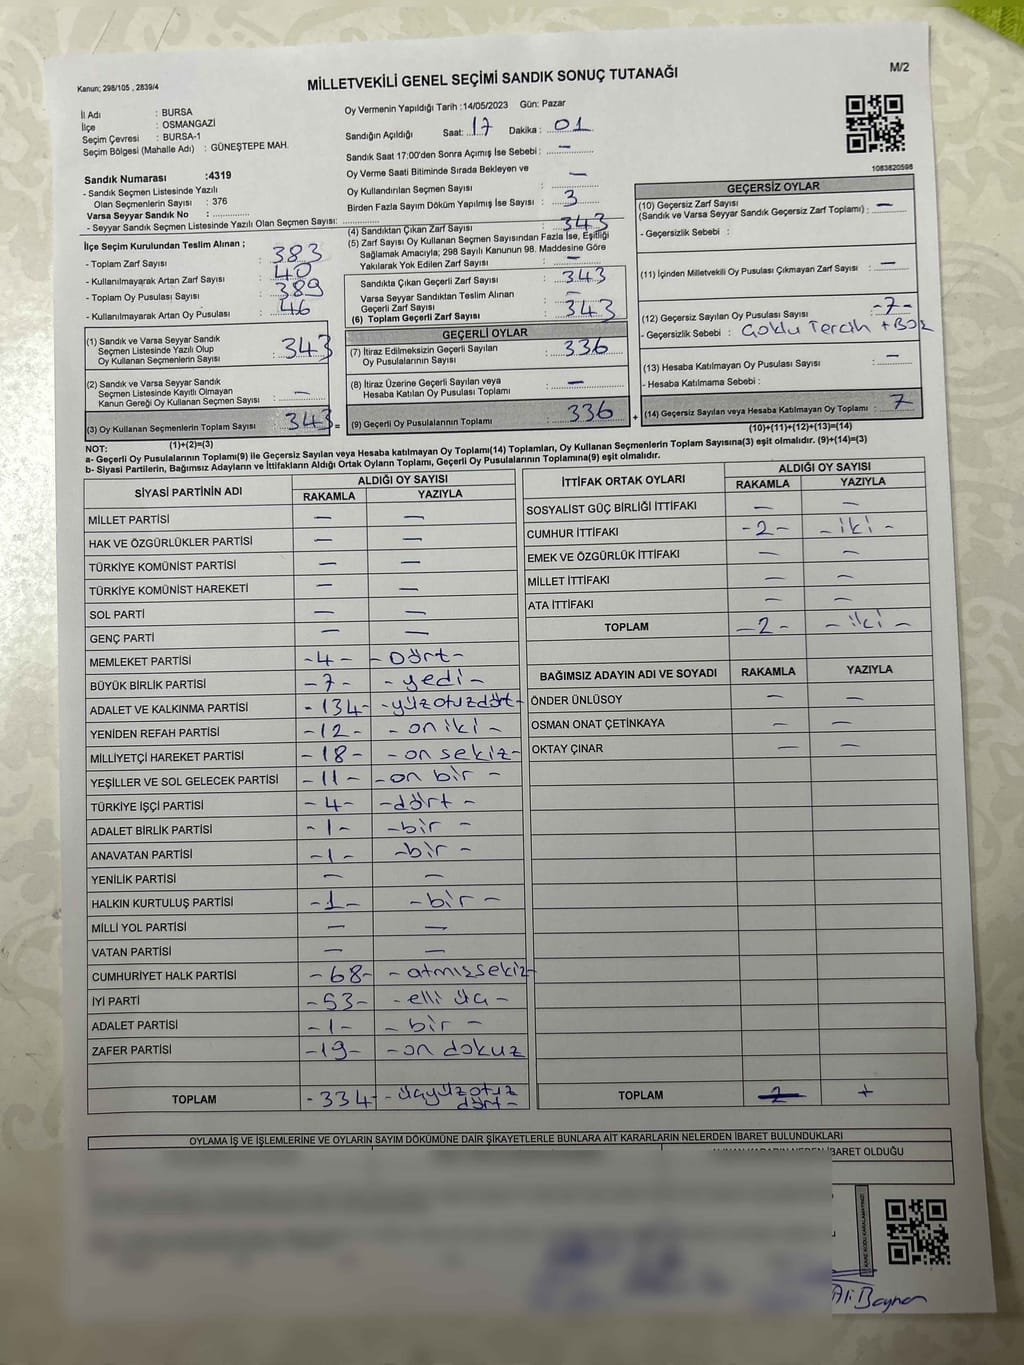 Kanun; 298/105 , 2839/4
MİLLETVEKİLİ GENEL SEÇİMİ SANDIK SONUÇ TUTANAĞI
M/2
İl Adı : BURSA
İlçe : OSMANGAZİ
Seçim Çevresi : BURSA-1
Seçim Bölgesi (Mahalle Adı) : GÜNEŞTEPE MAH.
Sandık Numarası :4319
- Sandık Seçmen Listesinde Yazılı
Olan Seçmenlerin Sayısı : 376
Varsa Seyyar Sandık No :
- Seyyar Sandık Seçmen Listesinde Yazılı Olan Seçmen Sayısı:
İlçe Seçim Kurulundan Teslim Alınan ;
- Toplam Zarf Sayısı : 383
- Kullanılmayarak Artan Zarf Sayısı : 40
- Toplam Oy Pusulası Sayısı : 389
- Kullanılmayarak Artan Oy Pusulası : 46
(1) Sandık ve Varsa Seyyar Sandık
Seçmen Listesinde Yazılı Olup
Oy Kullanan Seçmenlerin Sayısı : 343
(2) Sandık ve Varsa Seyyar Sandık
Seçmen Listesinde Kayıtlı Olmayan
Kanun Gereği Oy Kullanan Seçmen Sayısı : —
(3) Oy Kullanan Seçmenlerin Toplam Sayısı : 343 =
(1)+(2)=(3)
Oy Vermenin Yapıldığı Tarih :14/05/2023 Gün: Pazar
Sandığın Açıldığı Saat: 17 Dakika : 01
Sandık Saat 17:00'den Sonra Açımış İse Sebebi : —
Oy Verme Saati Bitiminde Sırada Bekleyen ve
Oy Kullandırılan Seçmen Sayısı : —
Birden Fazla Sayım Döküm Yapılmış İse Sayısı : 3
(4) Sandıktan Çıkan Zarf Sayısı : 343
(5) Zarf Sayısı Oy Kullanan Seçmen Sayısından Fazla İse, Eşitliği
Sağlamak Amacıyla; 298 Sayılı Kanunun 98. Maddesine Göre
Yakılarak Yok Edilen Zarf Sayısı : —
Sandıkta Çıkan Geçerli Zarf Sayısı : 343
Varsa Seyyar Sandıktan Teslim Alınan
Geçerli Zarf Sayısı : —
(6) Toplam Geçerli Zarf Sayısı : 343
GEÇERLİ OYLAR
(7) İtiraz Edilmeksizin Geçerli Sayılan
Oy Pusulalarının Sayısı : 336
(8) İtiraz Üzerine Geçerli Sayılan veya
Hesaba Katılan Oy Pusulası Toplamı : —
(9) Geçerli Oy Pusulalarının Toplamı : 336 +
1083820598
GEÇERSİZ OYLAR
(10) Geçersiz Zarf Sayısı
(Sandık ve Varsa Seyyar Sandık Geçersiz Zarf Toplamı) : —
- Geçersizlik Sebebi :
(11) İçinden Milletvekili Oy Pusulası Çıkmayan Zarf Sayısı : —
(12) Geçersiz Sayılan Oy Pusulası Sayısı : -7-
- Geçersizlik Sebebi : Çoklu Tercih +Boş
(13) Hesaba Katılmayan Oy Pusulası Sayısı : —
- Hesaba Katılmama Sebebi :
(14) Geçersiz Sayılan veya Hesaba Katılmayan Oy Toplamı : 7
(10)+(11)+(12)+(13)=(14)
NOT:
a- Geçerli Oy Pusulalarının Toplamı(9) ile Geçersiz Sayılan veya Hesaba katılmayan Oy Toplamı(14) Toplamları, Oy Kullanan Seçmenlerin Toplam Sayısına(3) eşit olmalıdır. (9)+(14)=(3)
b- Siyasi Partilerin, Bağımsız Adayların ve İttifakların Aldığı Ortak Oyların Toplamı, Geçerli Oy Pusulalarının Toplamına(9) eşit olmalıdır.
SİYASİ PARTİNİN ADI ALDIĞI OY SAYISI
RAKAMLA YAZIYLA
MİLLET PARTİSİ — —
HAK VE ÖZGÜRLÜKLER PARTİSİ — —
TÜRKİYE KOMÜNİST PARTİSİ — —
TÜRKİYE KOMÜNİST HAREKETİ — —
SOL PARTİ — —
GENÇ PARTİ — —
MEMLEKET PARTİSİ -4- -Dört-
BÜYÜK BİRLİK PARTİSİ -7- -yedi-
ADALET VE KALKINMA PARTİSİ -134- -yüzotuzdört-
YENİDEN REFAH PARTİSİ -12- -on iki-
MİLLİYETÇİ HAREKET PARTİSİ -18- -on sekiz-
YEŞİLLER VE SOL GELECEK PARTİSİ -11- -on bir-
TÜRKİYE İŞÇİ PARTİSİ -4- -dört-
ADALET BİRLİK PARTİSİ -1- -bir-
ANAVATAN PARTİSİ -1- -bir-
YENİLİK PARTİSİ — —
HALKIN KURTULUŞ PARTİSİ -1- -bir-
MİLLİ YOL PARTİSİ — —
VATAN PARTİSİ — —
CUMHURİYET HALK PARTİSİ -68- -atmışsekiz-
İYİ PARTİ -53- -elli üç-
ADALET PARTİSİ -1- -bir-
ZAFER PARTİSİ -19- -on dokuz
TOPLAM -334- -üçyüzotuz
dört-
İTTİFAK ORTAK OYLARI ALDIĞI OY SAYISI
RAKAMLA YAZIYLA
SOSYALİST GÜÇ BİRLİĞİ İTTİFAKI — —
CUMHUR İTTİFAKI -2- -iki-
EMEK VE ÖZGÜRLÜK İTTİFAKI — —
MİLLET İTTİFAKI — —
ATA İTTİFAKI — —
TOPLAM -2- -iki-
BAĞIMSIZ ADAYIN ADI VE SOYADI RAKAMLA YAZIYLA
ÖNDER ÜNLÜSOY — —
OSMAN ONAT ÇETİNKAYA — —
OKTAY ÇINAR — —
TOPLAM 2 +
OYLAMA İŞ VE İŞLEMLERİNE VE OYLARIN SAYIM DÖKÜMÜNE DAİR ŞİKAYETLERLE BUNLARA AİT KARARLARIN NELERDEN İBARET BULUNDUKLARI
İBARET OLDUĞU
KARE KODU KARALAMAYINIZ!
Ali